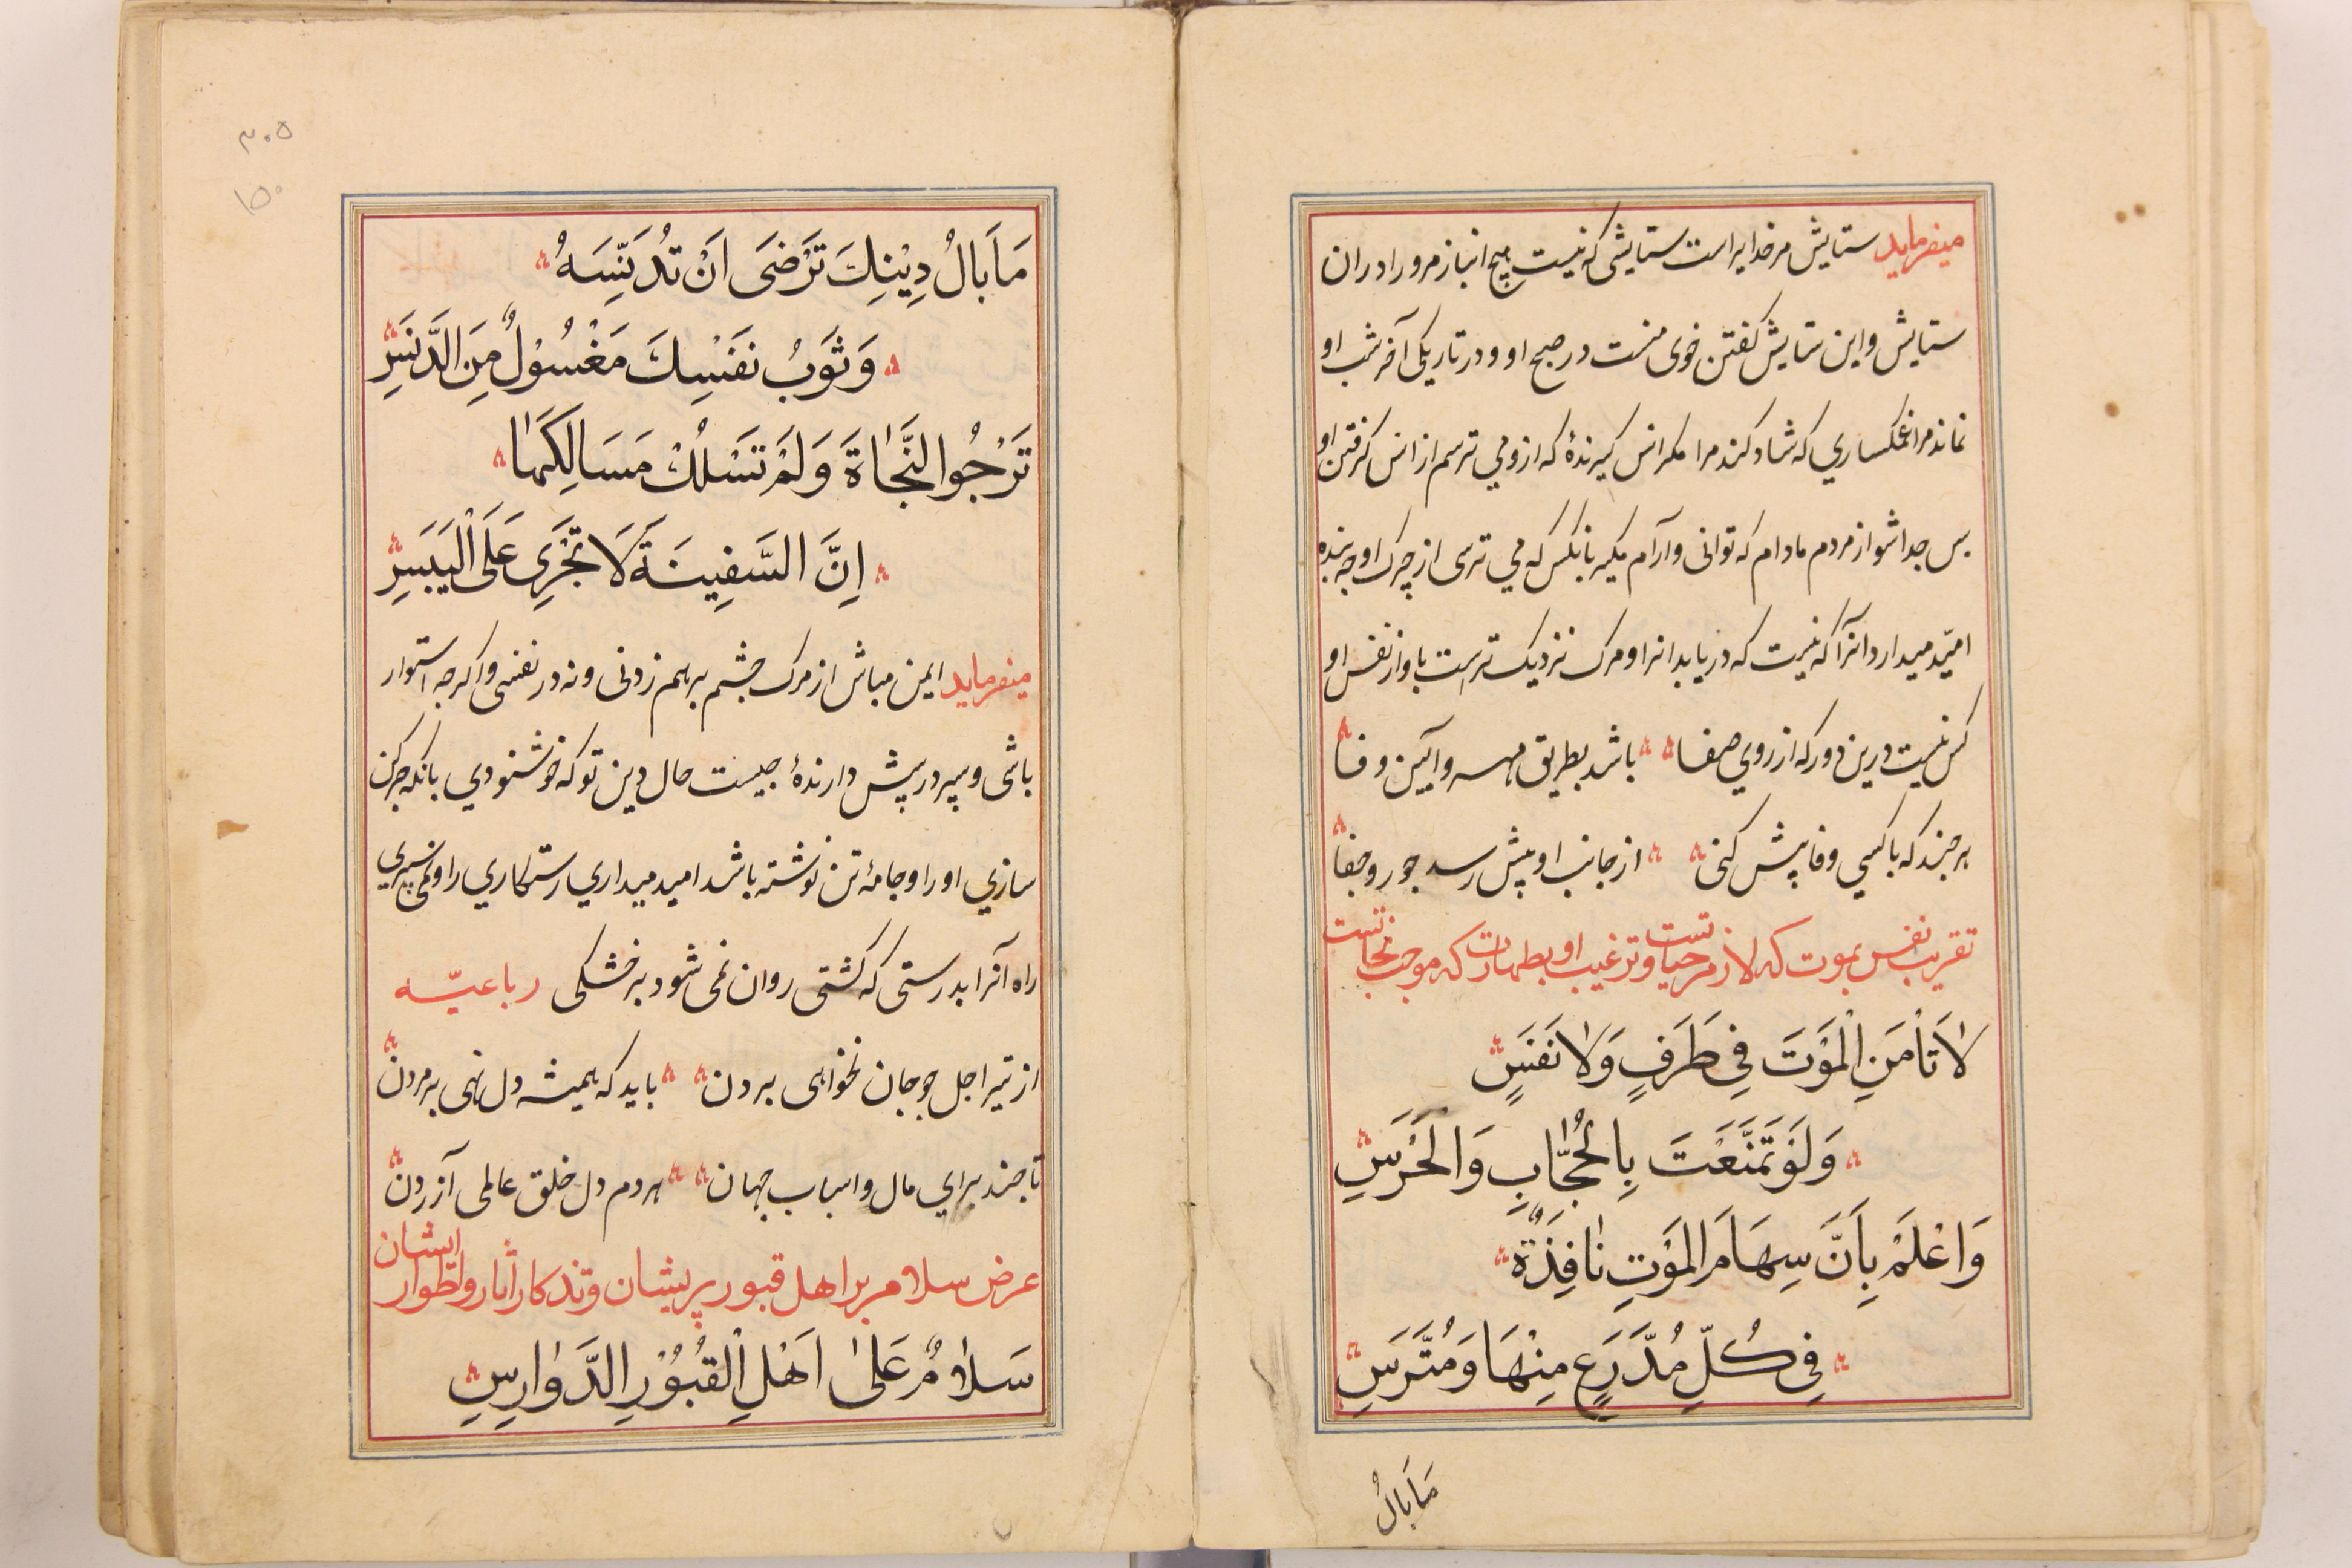 میفرماید ستایش مر خدایراست ستایشی که نیست هیچ انباز مرورا در ان
ستایش و این ستایش کفتن خوی منست در صبح او و در تاریکی آخر شب او
نماند مرا غمکساری که شاد کند مرا مکر انس کیرندهٔ که ازو می ترسم از انس کرفتن او
بس جدا شو از مردم مادام که توانی و آرام مکیر بانکس که می ترسی از چرک او جه بنده
امیّد میدارد انرا که نیست که دریابد انرا و مرک نزدیک ترست باو از نفس او
کس نیست درین دور که از روی صفا باشد بطریق مهر و آیین وفا
هر جند که با کسی وفا پیش کنی از جانب او پیش رسد جور و جفا
تقریب نفس بموت که لازم حیاتست و ترغیب او بطهارت که موجب نجاتست
لَا تَأْمَنِ الْمَوْتَ فِي طَرَفٍ وَلَا نَفَسٍ
وَلَوْ تَمَنَّعْتَ بِالْحُجَّابِ وَالْحَرَسِ
وَاعْلَمْ بِأَنَّ سِهَامَ الْمَوْتِ نَافِذَةٌ
فِي كُلِّ مُدَّرَعٍ مِنْهَا وَمُتَّرَسِ
مَا بَالُ
٣٠٥
١٥٠
مَا بَالُ دِيْنِكَ تَرْضَى اَنْ تُدَنِّسَهُ
وَثَوْبُ نَفْسِكَ مَغْسُوْلٌ مِنَ الدَّنَسِ
تَرْجُوا النَّجَاةَ وَلَمْ تَسْلُكْ مَسَالِكَهَا
اِنَّ السَّفِينَةَ لَا تَجْرِي عَلَى الْيَبَسِ
میفرماید ایمن مباش از مرک چشم برهم زدنی و نه در نفسی و اکرجه استوار
باشی و سپر در پیش دارندهٔ جیست حال دین تو که خوشنودی بانکه چرکن
سازی او را و جامهٔ تن تو شسته باشد امید میداری رستکاری را و نمی سپری
راه آنرا بدرستی که کشتی روان نمی شود بر خشکی رباعیّه
از تیر اجل جو جان نخواهی بردن باید که همیشه دل نهی بر مردن
تا جند برای مال و اسباب جهان هر دم دل خلق عالمی آزردن
عرض سلام بر اهل قبور پریشان و تذکار آثار و اطوار ایشان
سَلَامٌ عَلَىٰ اَهْلِ الْقُبُوْرِ الدَّوَارِسِ